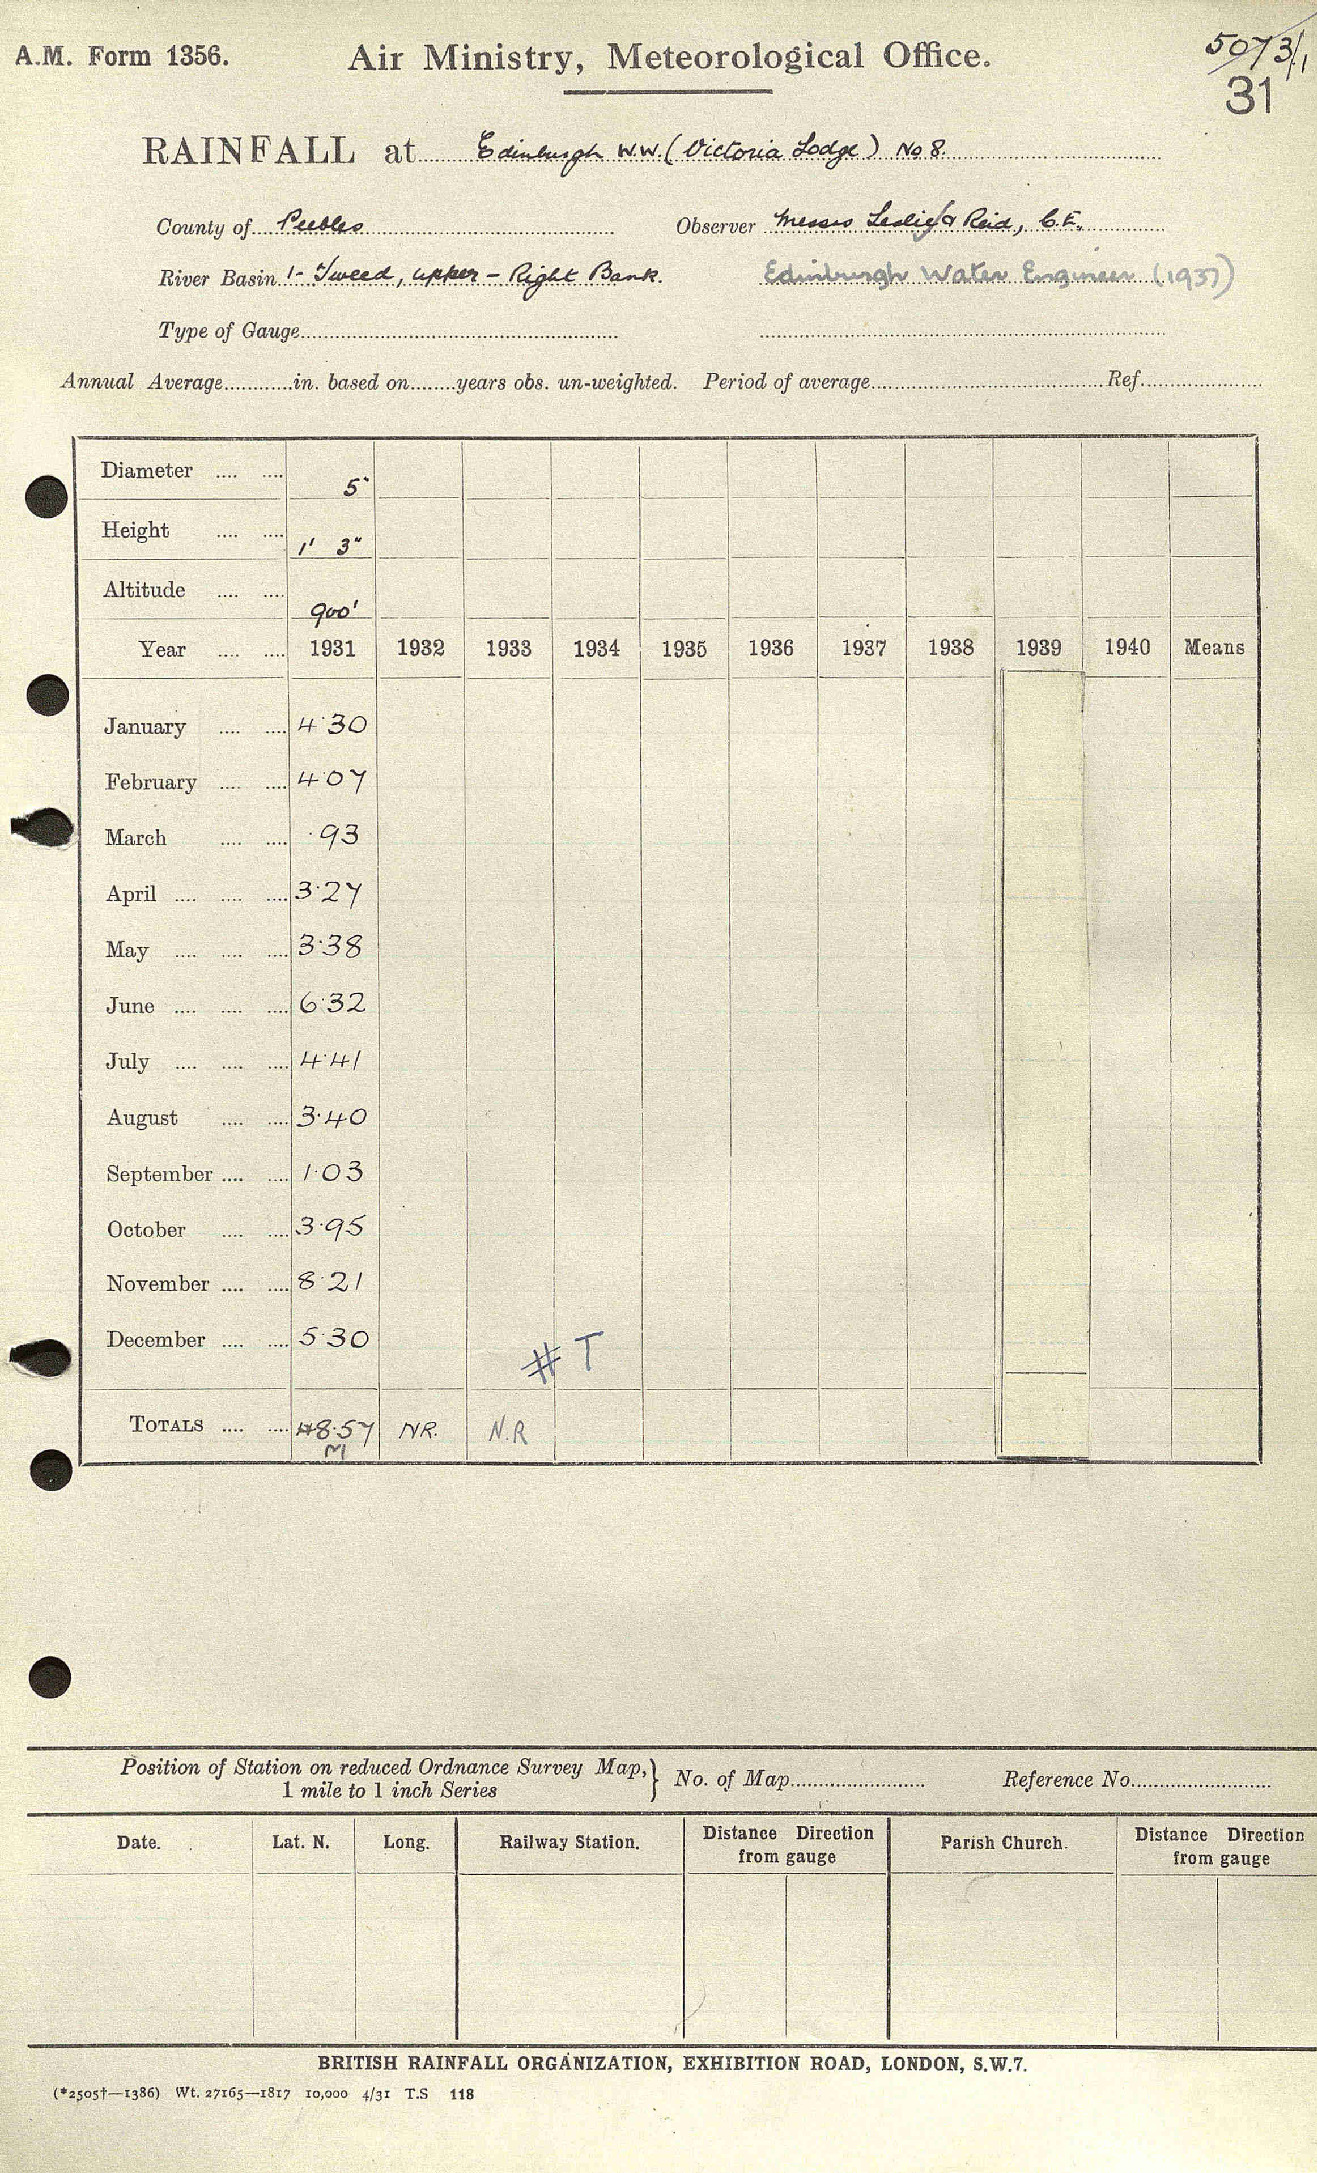 A.M. Form 1356. Air Ministry, Meteorological Office. 5073/1
31
RAINFALL at Edinburgh W.W. (Victoria Lodge) No 8.
County of Peebles Observer Messrs Leslie & Reid, C.E.
River Basin 1- Tweed, upper - Right Bank. Edinburgh Water Engineer (1937)
Type of Gauge
Annual Average in. based on years obs. un-weighted. Period of average Ref.
Diameter 5"
Height 1' 3"
Altitude 900'
Year 1931 1932 1933 1934 1935 1936 1937 1938 1939 1940 Means
January 4·30
February 4·07
March ·93
April 3·27
May 3·38
June 6·32
July 4·41
August 3·40
September 1·03
October 3·95
November 8·21
December 5·30
# T
TOTALS 48·57 NR. N.R
Position of Station on reduced Ordnance Survey Map, } No. of Map Reference No.
1 mile to 1 inch Series
Date. Lat. N. Long. Railway Station. Distance Direction from gauge Parish Church. Distance Direction from gauge
BRITISH RAINFALL ORGANIZATION, EXHIBITION ROAD, LONDON, S.W.7.
(*2505†—1386) Wt. 27165—1817 10,000 4/31 T.S 118